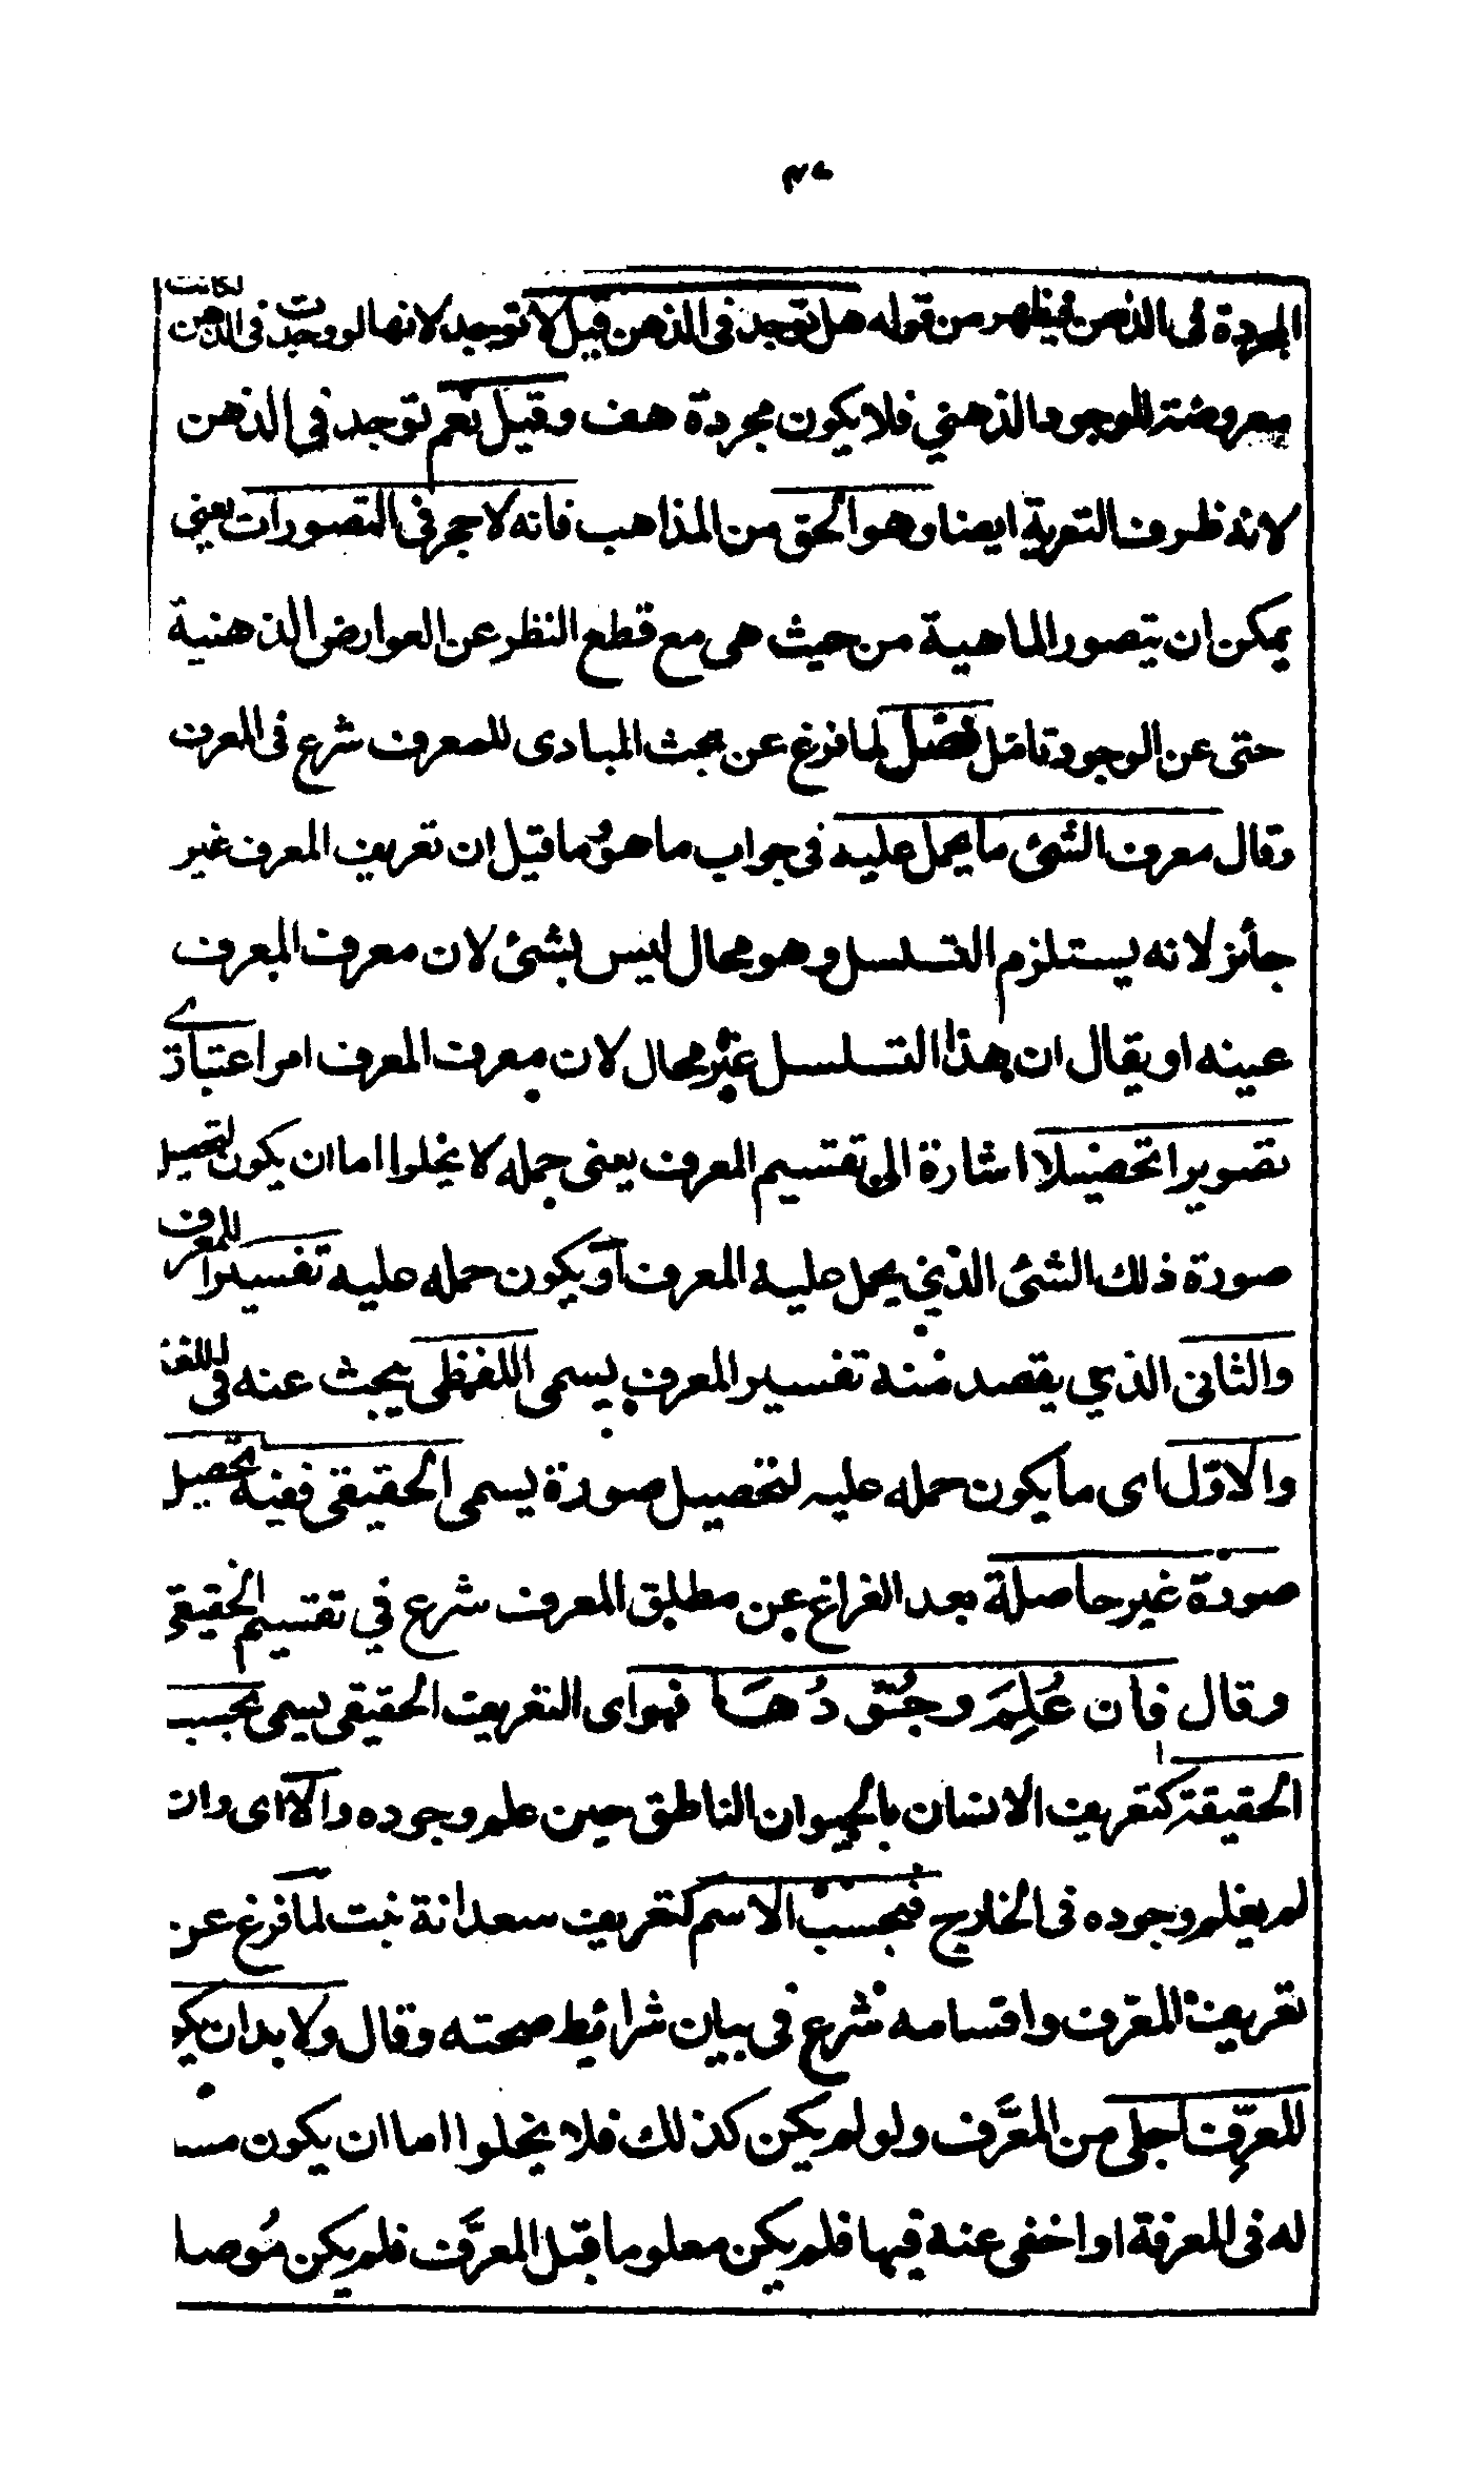 ٣٧
المجردة فى الذهن فيظهر من قوله هل توجد فى الذهن قيل لا توجد لانها لو وجدت فى الذهن لكانت
معروضة للوجود الذهني فلا يكون مجردة هف وقيل نعم توجد في الذهن
لانه ظرف التعرية ايضا وهو الحق من المذاهب فانه لا حجر فى التصورات يعنى
يمكن ان يتصور الماهية من حيث هى مع قطع النظر عن العوارض الذهنية
حتى عن الوجود تامل فصل لما فرغ عن بحث المبادى للمعرف شرع فى المعرف
وقال معرف الشئ ما يحمل عليه فى جواب ما هو ما قيل ان تعريف المعرف غير
جائز لانه يستلزم التسلسل وهو محال ليس بشئ لان معرف المعرف
عينه او يقال ان هذا التسلسل غير محال لان معرف المعرف امر اعتبارى
تصويرا تحصيلا اشارة الى تقسيم المعرف يعنى حمله لا يخلوا اما ان يكون لتحصيل
صورة ذلك الشئ الذي يحمل عليه المعرف او يكون حمله عليه تفسيرا للمعرف
والثانى الذي يقصد منه تفسير المعرف يسمى اللفظى يبحث عنه فى اللغة
والاول اى ما يكون حمله عليه لتحصيل صورة يسمى الحقيقى ففيه تحصيل
صورة غير حاصلة بعد الفراغ عن مطلق المعرف شرع في تقسيم الحقيقى
وقال فان عُلِمَ وجُوْدُهَا فهو اى التعريف الحقيقى يسمى بحسب
الحقيقة كتعريف الانسان بالحيوان الناطق حين علم وجوده والا اى وان
لم يعلم وجوده فى الخارج فبحسب الاسم كتعريف سعدانة نبت لما فرغ عن
تعريف المعرف واقسامه شرع فى بيان شرائط صحته وقال ولا بد ان يكو
المعرِّف اجلى من المعرَّف ولو لم يكن كذلك فلا يخلوا اما ان يكون مسا
له فى المعرفة او اخفى عنه فيها فلم يكن معلوما قبل المعرَّف فلم يكن مُوصلا